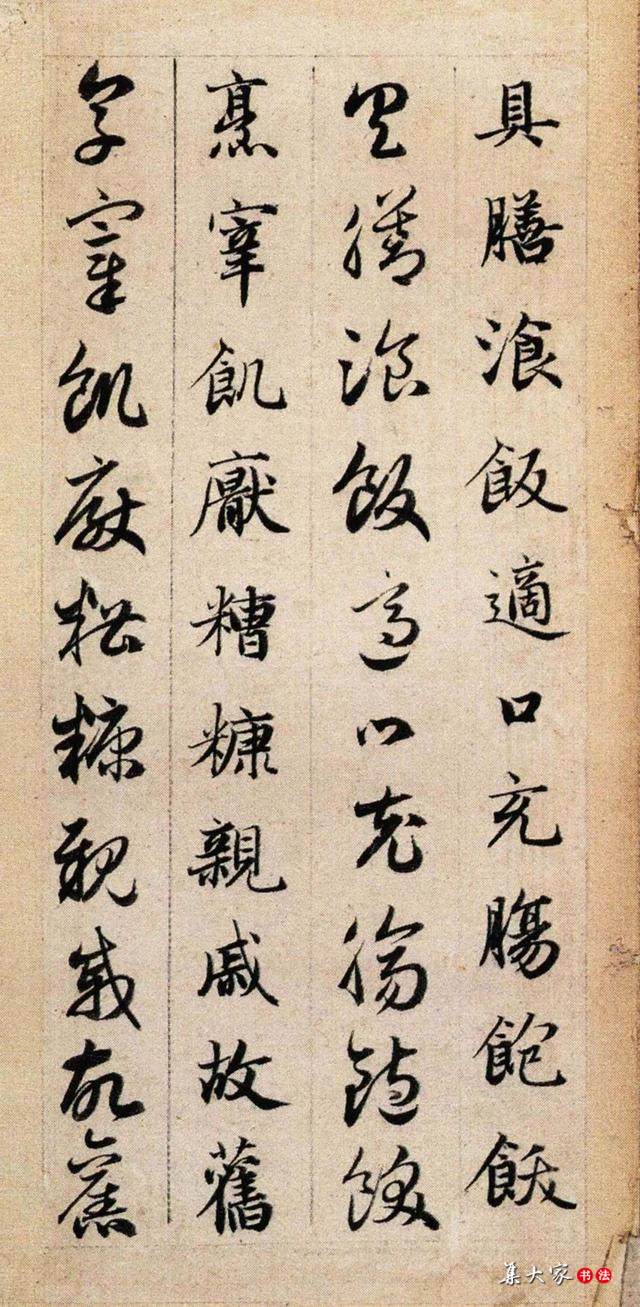 具膳湌飯適口充腸飽飫
具膳湌飯適口充腸飽飫
烹宰飢厭糟糠親戚故舊
烹宰飢厭糟糠親戚故舊
集大家书法